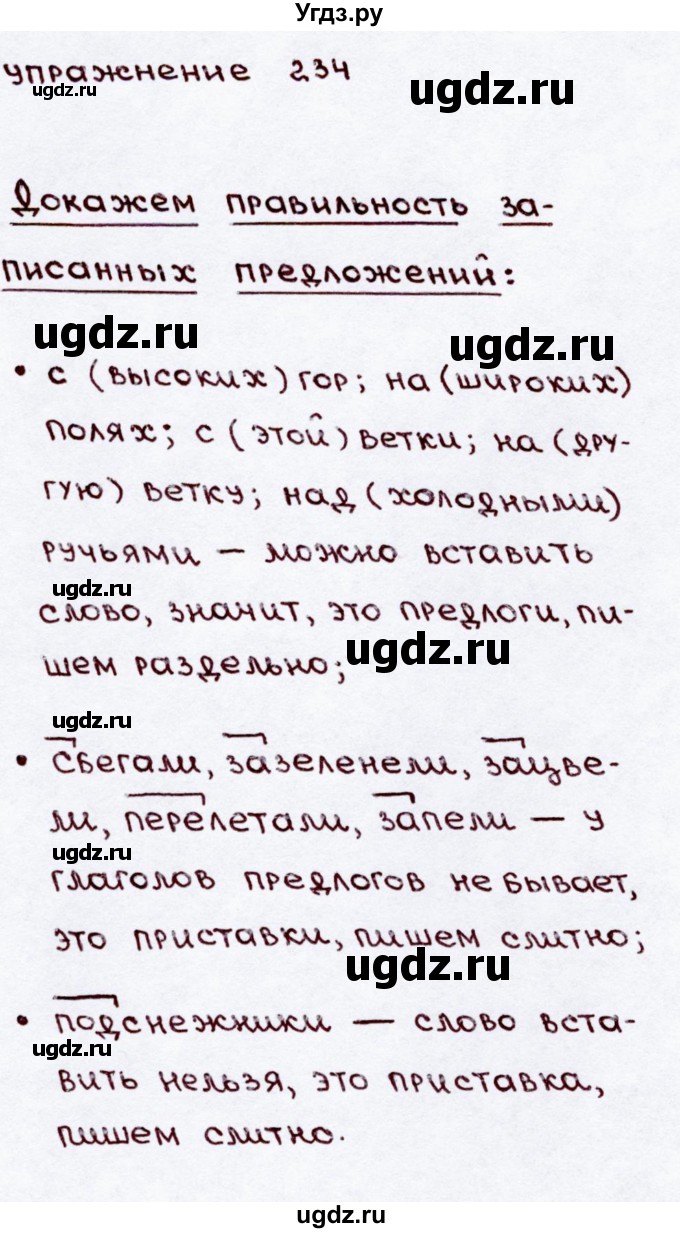 Угдз.ру
упражнение 234
ugdz.ru
ugdz.ru
Докажем правильность за-
писанных предложений:
ugdz.ru
ugdz.ru
• с (высоких) гор; на (широких)
полях; с (этой) ветки; на (дру-
гую) ветку; над (холодными)
ручьями — можно вставить
ugdz.ru
слово, значит, это предлоги, пи-
ugdz.ru
шем раздельно;
ugdz.ru
• Сбегали, зазеленели, зацве-
ли, перелетали, запели — у
ugdz.ru
глаголов предлогов не бывает,
это приставки, пишем слитно;
ugdz.ru
• подснежники — слово вста-
ugdz.ru
вить нельзя, это приставка,
пишем слитно.
ugdz.ru